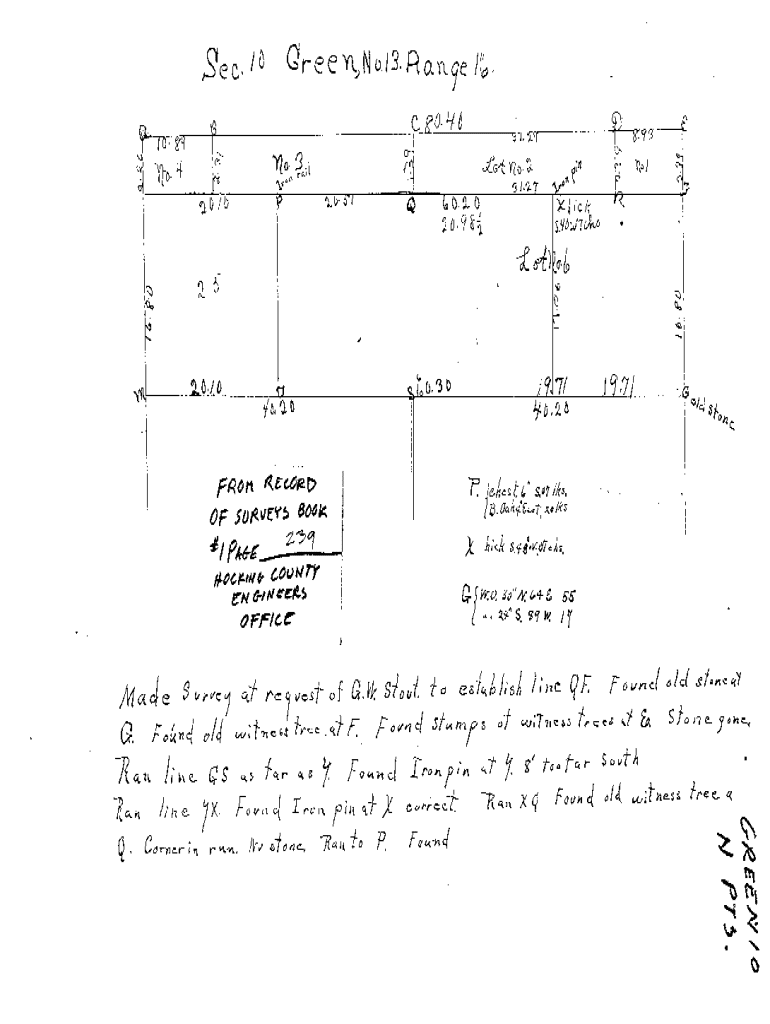 Sec. 10 Green, No 13. Range 16.
C 80.40
10.89
31.27
8.93
No. 4
No. 3
Iron rail
Lot No. 2
Iron pin
No 1
20.10
P
20.51
Q
60.20
31.27
X hick
R
20.98½
Lot No 6
25
16.80
M
20.10
S 60.30
19.71
19.71
G old stone
40.20
40.20
FROM RECORD
OF SURVEYS BOOK
#1 PAGE 239
HOCKING COUNTY
ENGINEERS
OFFICE
X hick
G W.O. 30" N. 64 E 55
24" S. 89 W. 17
Made Survey at request of G.W. Stout. to establish line QF. Found old stone at
G. Found old witness tree at F. Found stumps of witness trees at E. Stone gone,
Ran line GS as far as Y. Found Iron pin at Y. 8' too far South
Ran line YX. Found Iron pin at X correct. Ran XQ Found old witness tree a
Q. Corner in run. No stone, Ran to P. Found
GREEN 10
N PTS.